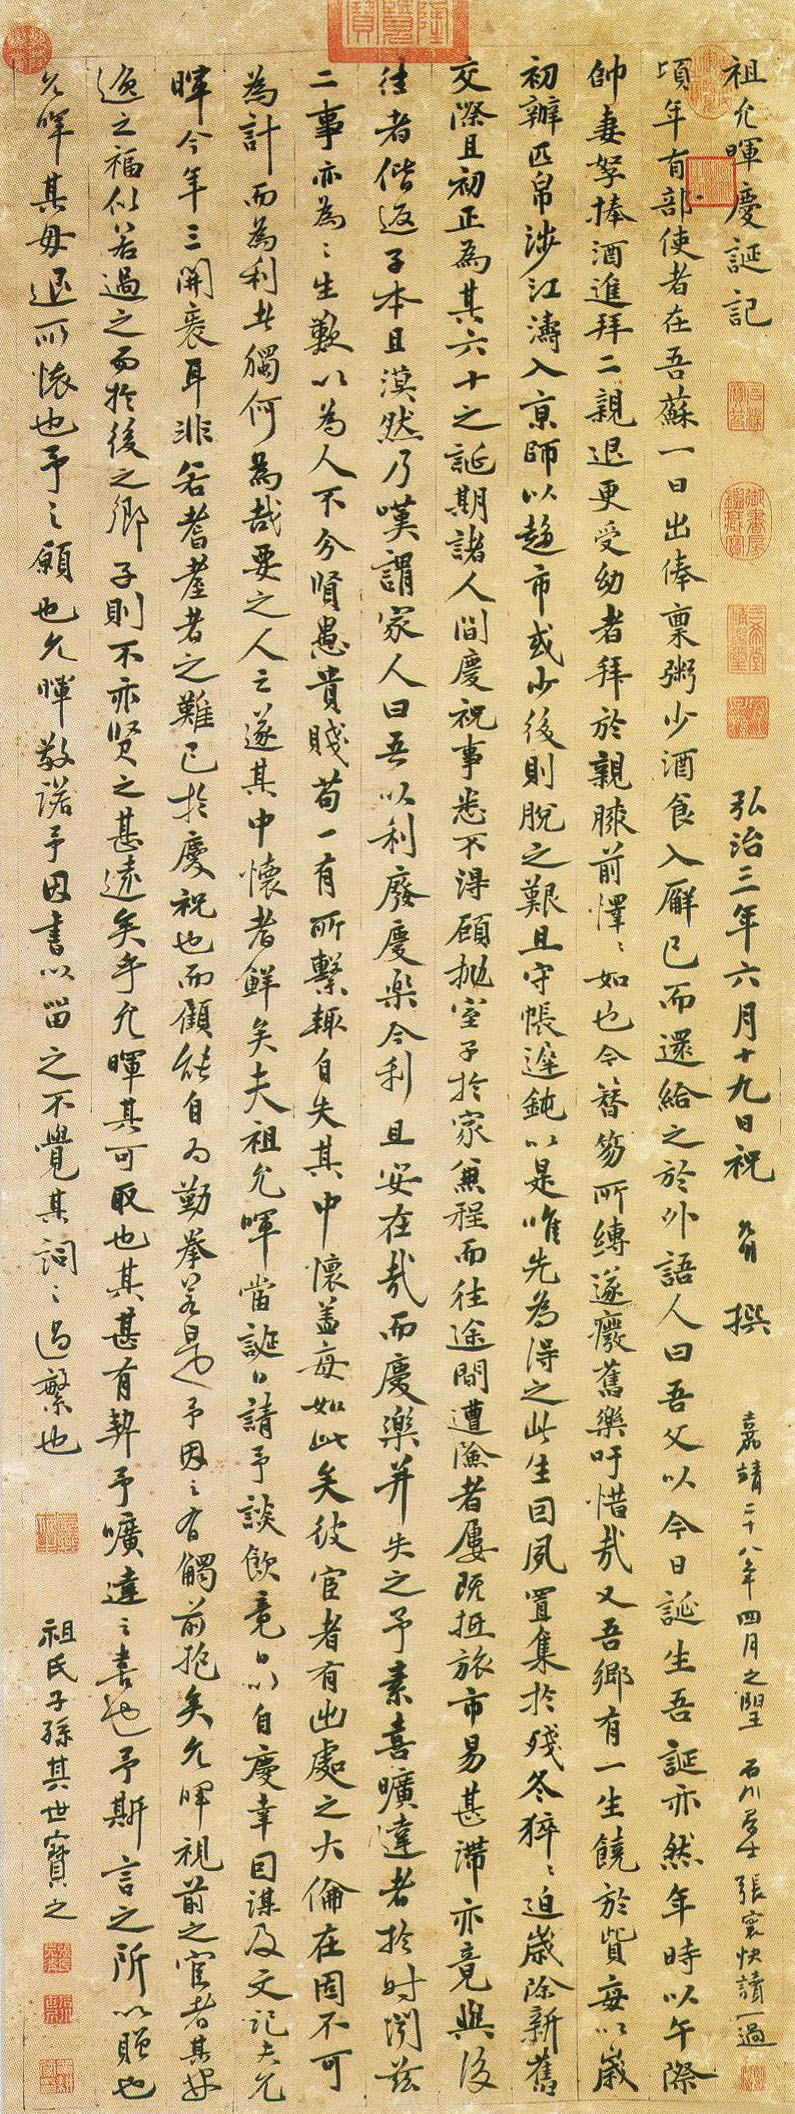 祖允暉慶誕記
弘治三年六月十九日祝 允明 撰
嘉靖二十八年四月之望 石川居士張寰快讀一過
頃年有部使者在吾蘇一日出俸稟粥少酒食入廨已而還給之於外語人曰吾父以今日誕生吾誕亦然年時以午際
帥妻孥捧酒進拜二親退更受幼者拜於親膝前懌〻如也今簪笏所縛遂癈舊樂吁惜哉又吾鄉有一生饒於貲每以歲
初辦匹帛涉江濤入京師以趋市或少後則脫之艱且守帳遲鈍以是唯先為得之此生因夙置集於殘冬猝〻迫歲除新舊
交際且初正為其六十之誕期諸人間慶祝事悉不得顧抛室子於家兼程而往途間遭潦者屢既抵旅市易甚滯亦竟與後
往者偕返子本且漠然乃嘆謂家人曰吾以利廢慶樂今利且安在哉而慶樂并失之予素喜曠達者於時閱玆
二事亦為〻生歎以為人不分賢愚貴賤苟一有所繫輙自失其中懷盖每如此矣彼宦者有出處之大倫在固不可
為計而為利者獨何為哉要之人之遂其中懷者鮮矣夫祖允暉當誕日請予談飲竟日以自慶幸因謀及文記夫允
暉今年三開袠耳非若耆耋者之難已於慶祝也而顧能自為勤拳若是也予因〻有觸前抱矣允暉視前之宦者其安
逸之福似若過之而於後之鄉子則不亦贤之甚遠矣乎允暉其可取也其甚有契予曠達之喜也予斯言之所以贈也
允暉其毋退所懷也予之願也允暉敬諾予因書以留之不覺其詞〻過繁也
祖氏子孫其世寶之